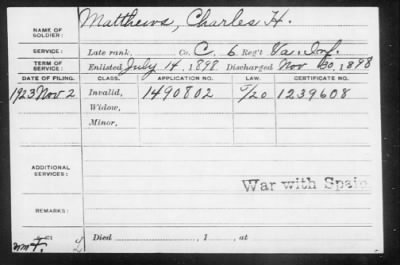 NAME OF SOLDIER: Matthews, Charles H.
SERVICE: Late rank, Co. C, 6 Reg't Va. Inf.
TERM OF SERVICE: Enlisted July 14, 1898 Discharged Nov 30, 1898
DATE OF FILING. CLASS. APPLICATION NO. LAW. CERTIFICATE NO.
1923 Nov 2 Invalid, 1490802 1239608
Widow,
Minor,
ADDITIONAL SERVICES:
War with Spain
REMARKS:
Died , 1 , at